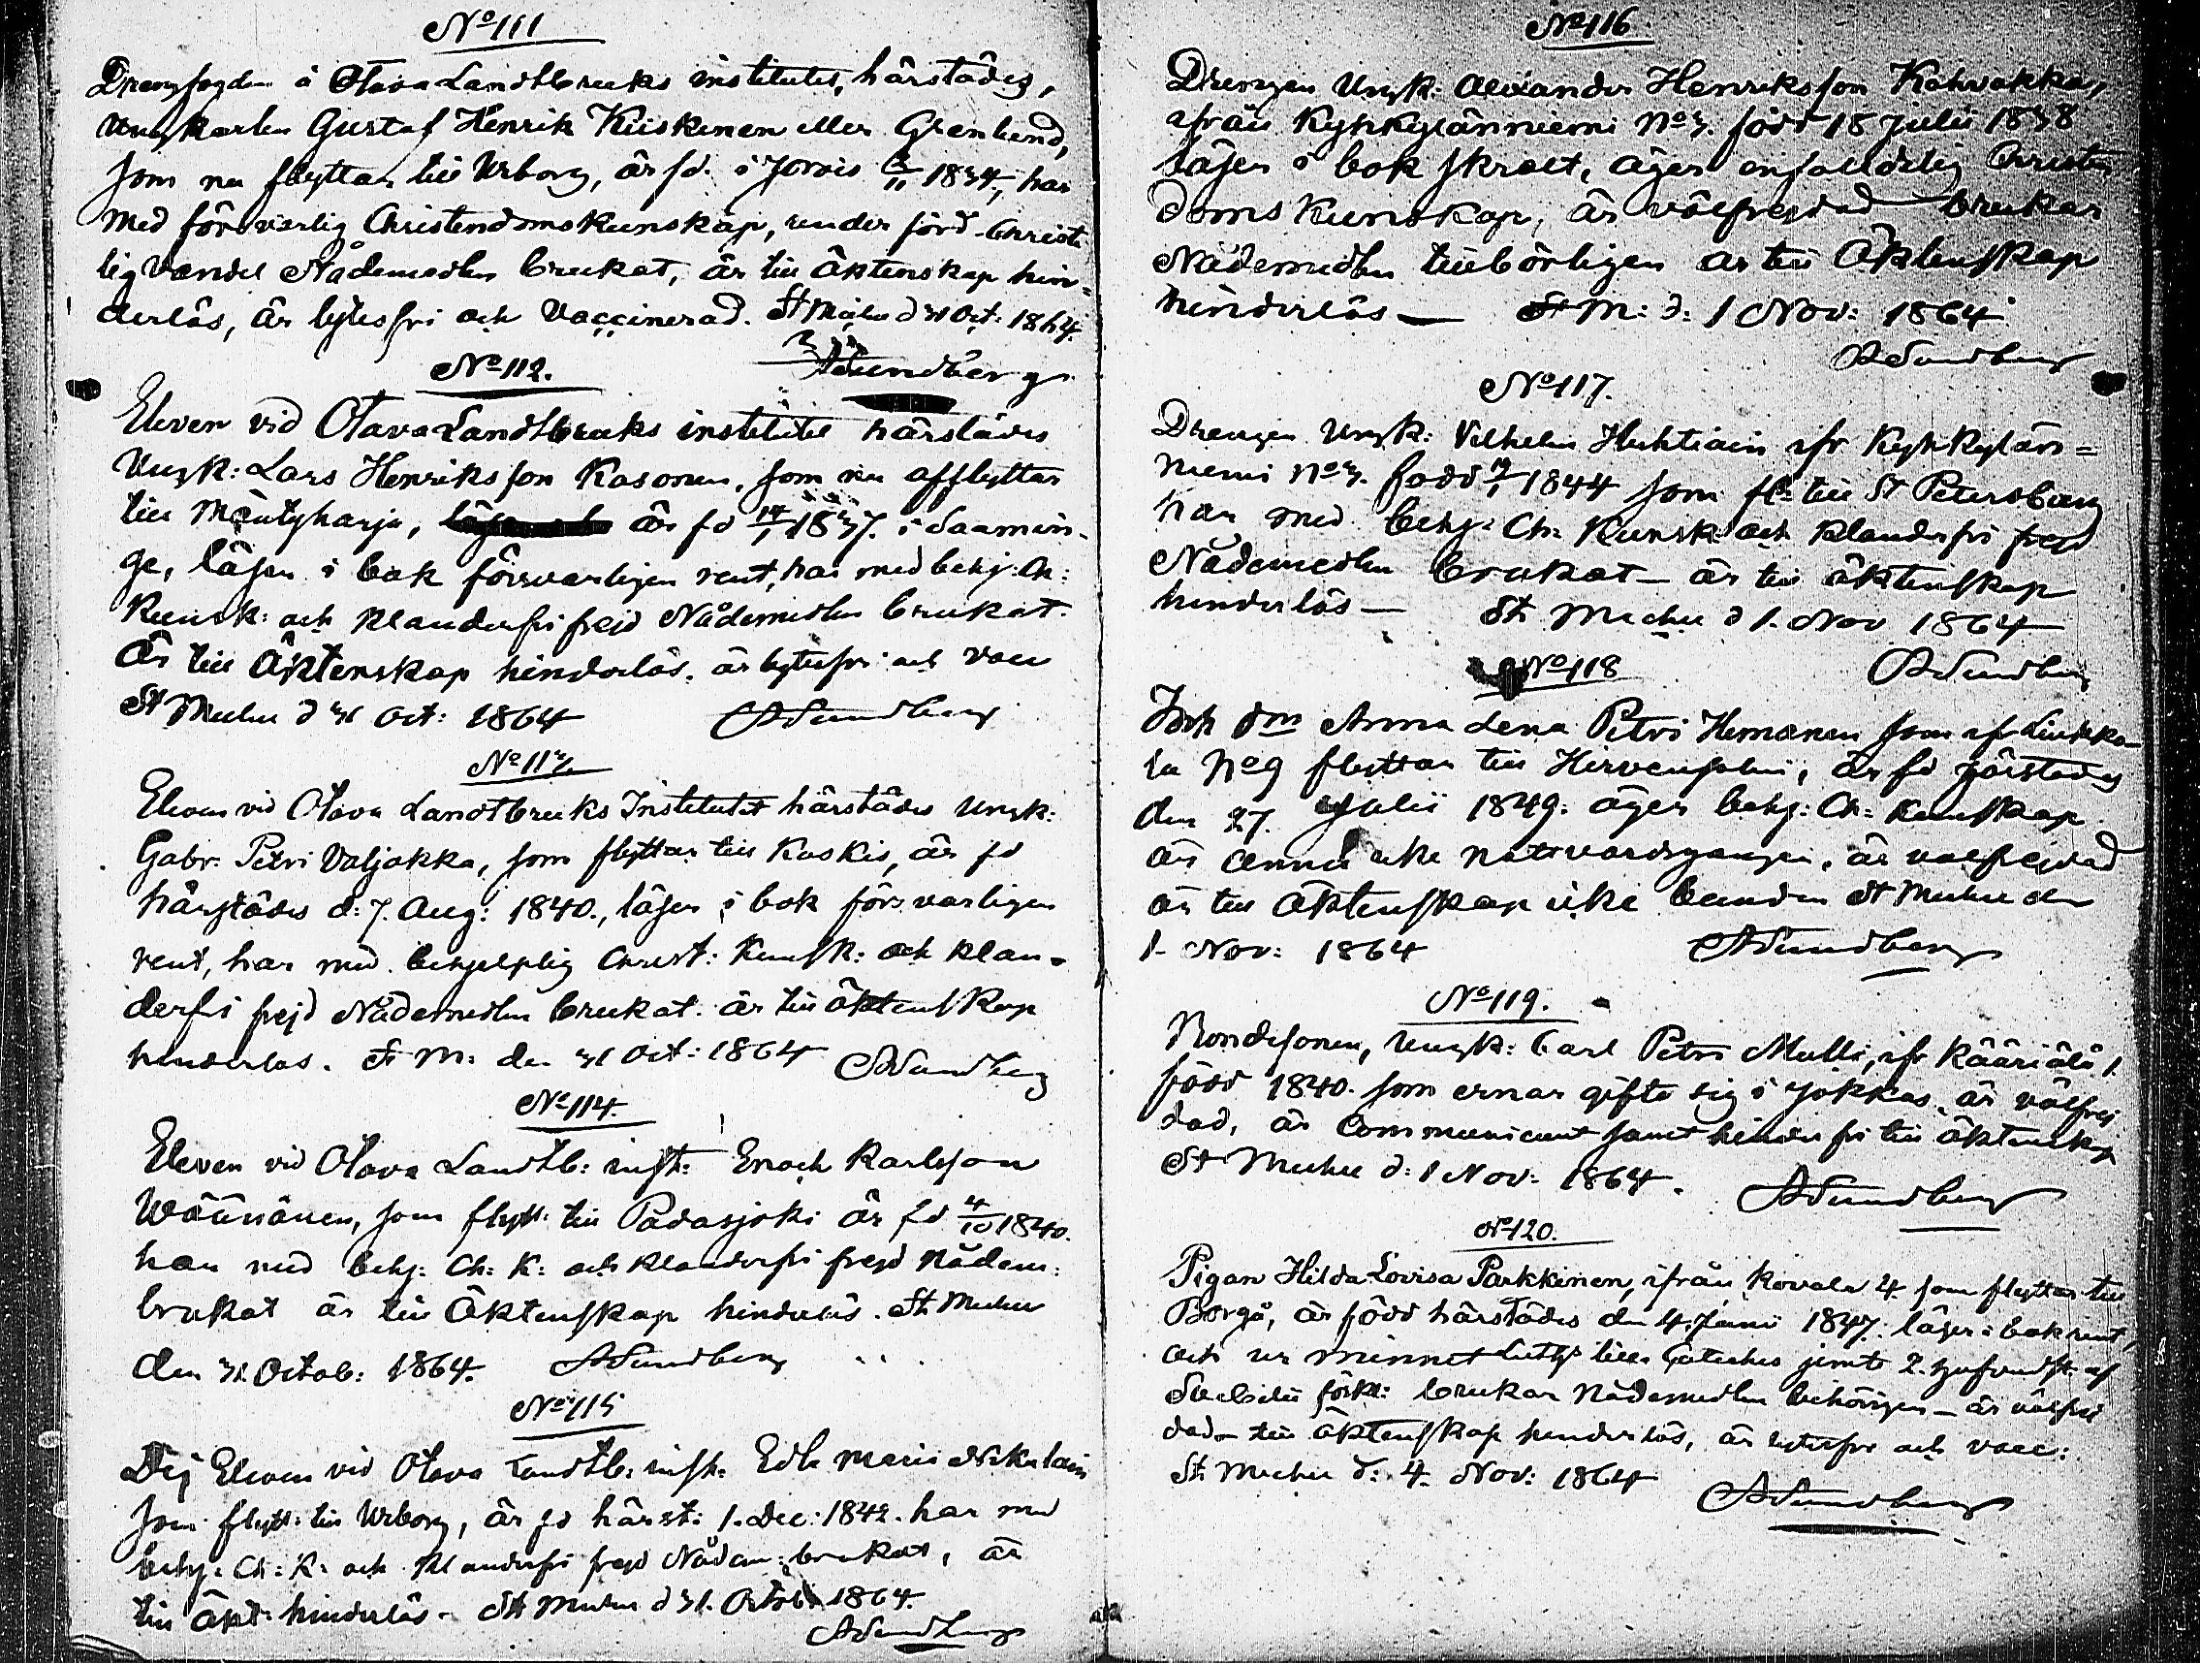 No 111
Drengfogden å Otava Landtbruks institutet, härstädes,
Ungkarlen Gustaf Henrik Kiiskinen eller Grenlund,
som nu flyttar till Wiborg, är fd. i Jorois 1834, har
med försvarlig Christendomskunskap, under förd Christe
lig vandel Nådemedlen brukat, är till äktenskap hin=
derlös, är lytesfri och Vaccinerad. St Michel d 31 Oct: 1864.
ASundberg
No 112.
Eleven vid Otava Landtbruks institutet härstädes
Ungk: Lars Henriksson Kasonen, som nu afflyttar
till Mäntyharju, är fd 1837. i Saamin-
ge, läser i bok försvarligen rent, har med behj: Ch:
Kunsk: och klanderfri frejd Nådemedlen brukat.
Är till Äktenskap hinderlös, är lytesfri och vacc
St Michel d 31 Oct: 1864 ASundberg
No 113.
Eleven vid Otava Landtbruks Institutet härstädes Ungk:
Gabr. Petri Valjakka, som flyttar till Kuskis, är fd
härstädes d: 7. Aug: 1840., läser i bok försvarligen
rent, har med behjelplig Christ: Kunsk: och klan=
derfri frejd Nådemedlen brukat. är till äktenskap
hinderlös. St M: den 31 Oct: 1864 ASundberg
No 114.
Eleven vid Otava Landtb: inst: Enoch Karlsson
Wäänänen, som flytt: till Padasjoki är fd 4/10 1840.
har med behj: Ch: K: och klanderfri frejd Nådem:
brukat är till Äktenskap hinderlös. St Michel
den 31 Octob: 1864. ASundberg
No 115
Dej Eleven vid Otava Landtb: inst: Edla Maria Nikulain
som flytt: till Wiborg, är fd härst: 1. Dec: 1842. har med
behj: Ch: K: och klanderfri frejd Nådem: brukat, är
till äkt: hinderlös. St Michel d 31. Octob: 1864.
ASundberg
No 116
Drengen Ungk: Alexander Henriksson Kahvakka,
ifrån Kyhkylänniemi No 3. född 18 Julii 1838
läser i bok skralt, äger enfalldelig Christen
doms Kunskap, är välfrejdad brukar
Nådemedlen tillbörligen är till Äktenskap
hinderlös — St M: d: 1 Nov: 1864
ASundberg
No 117.
Drengen Ungk: Vilhelm Huhtiain ifr Kyhkylän=
niemi No 3. född 1844 som fl: till St Petersburg
har med behj: Ch: Kunsk: och klanderfri frejd
Nådemedlen brukat — är till äktenskap
hinderlös — St Michel d 1. Nov 1864
ASundberg
No 118
Anna Lena Petri Hemänen som ifr
la No 9 flyttar till Hirvensalmi, är fd härstädes
den 27. Julii 1849. äger behj: Ch: Kunskap
är ännu icke nattvardsgången, är välfrejdad
är till Äktenskap icke bunden St Michel den
1. Nov: 1864 ASundberg
No 119.
Bondesonen, Ungk: Carl Petri Mulli, ifr Kääriälä 1.
född 1840. som ernar gifta sig i Jokkas, är välfrej
dad, är Communicant samt hinderfri till äktenskap
St Michel d: 1 Nov: 1864. ASundberg
No 120.
Pigan Hilda Lovisa Parkkinen, ifrån Kovala 4 som flyttar till
Borgå, är född härstädes den 4. Juni 1847. läser i bok rent,
och ur minnet Luth: lilla Cateches jemte 2. af
Svebilii förkl: brukar Nådemedlen behörigen — är välfrej
dad — till äktenskap hinderlös, är lytesfri och vacc:
St Michel d: 4. Nov: 1864
ASundberg